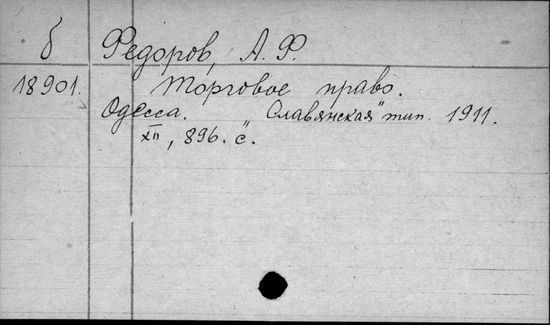 б Федоров, А. Ф.
18901. Торговое право.
Одесса. „Славянская" тип. 1911.
XII, 896. с.